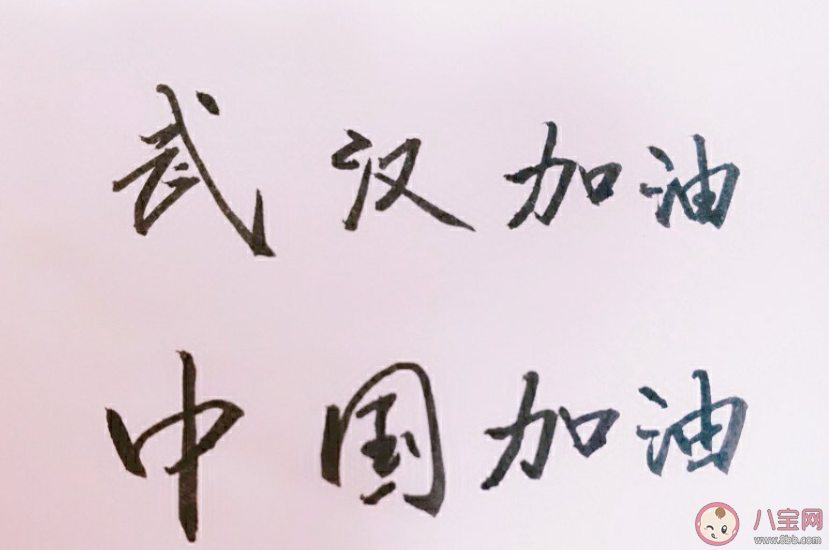 武汉加油
中国加油
八宝网
www.8bb.com